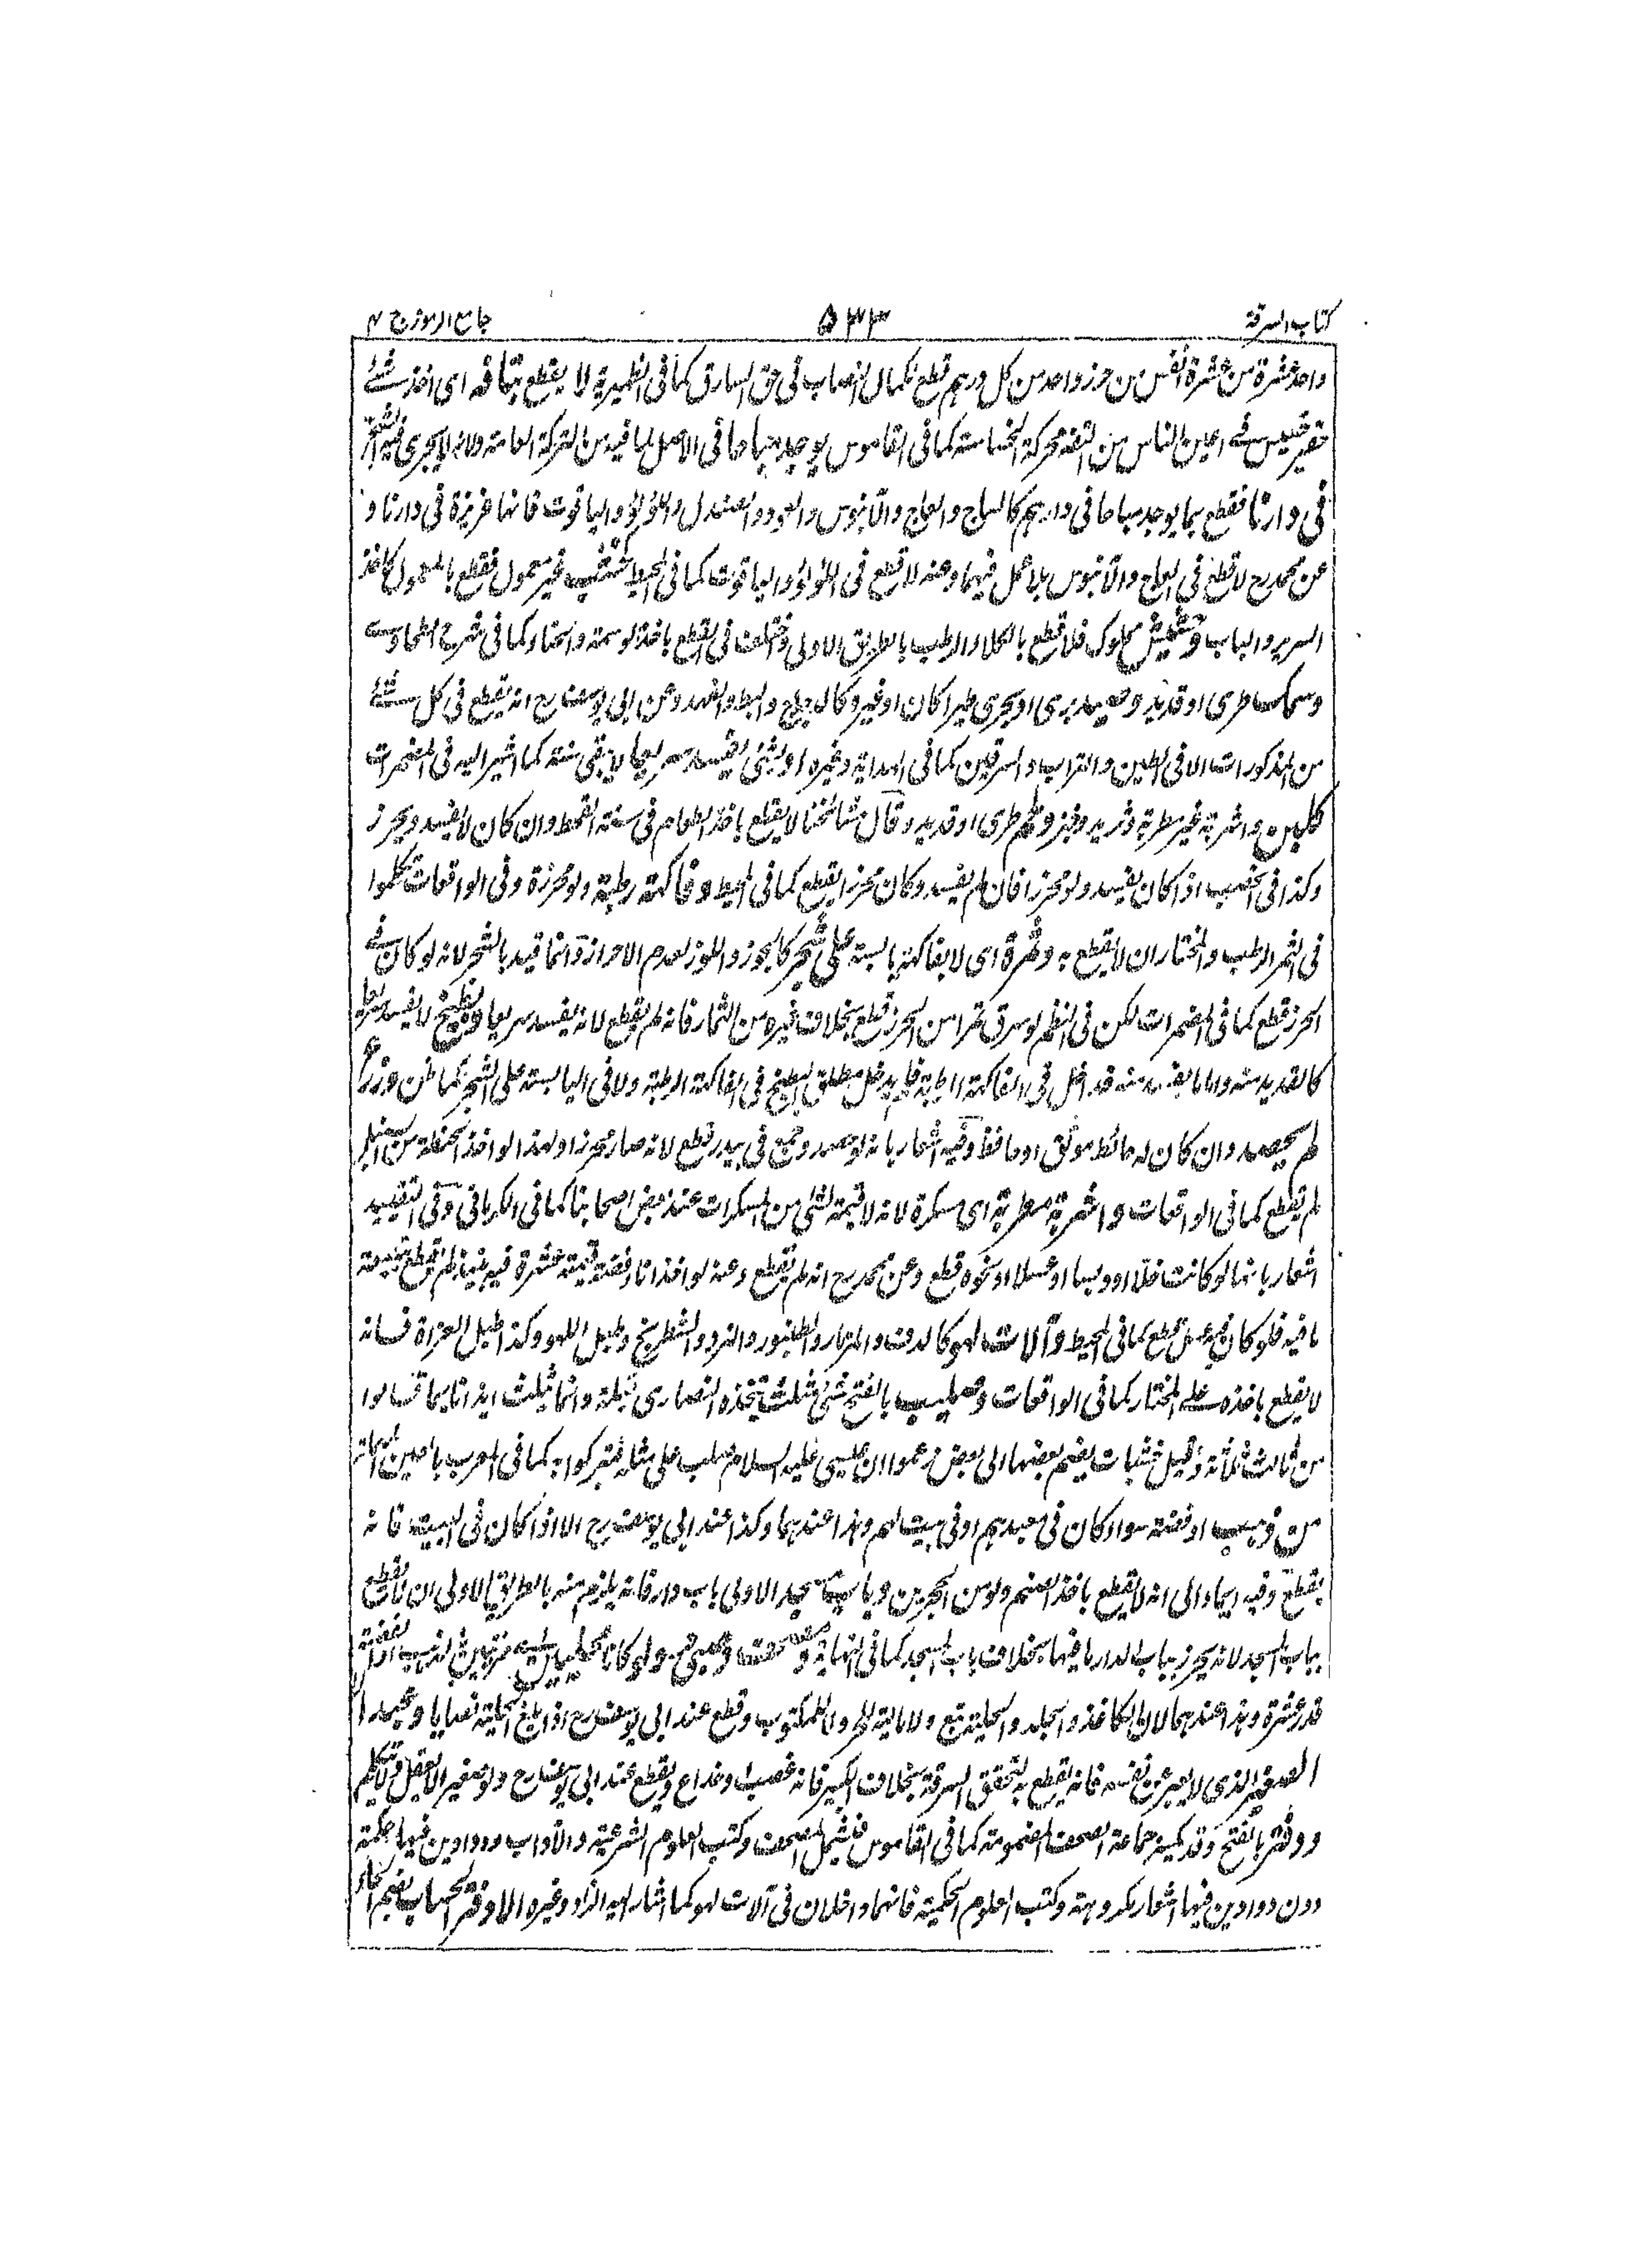 كتاب السرقة ٥٣٣ جامع الرموز ج ٢
واحد عشرة من عشرة أنفس من حرز واحد من كل درهم قطع لكمال النصاب فى حق السارق كما فى الظهيرية لا يقطع بتافه اى اخذ شئ
حقير خسيس فى اعين الناس من التفه محركة الخساسة كما فى القاموس يوجد مباحا فى الاصل
فى دارنا فقطع بما يوجد مباحا فى دارهم كالساج والعاج والآبنوس والعود والصندل واللؤلؤ والياقوت فانها عزيزة فى دارنا و
عن محمد رح لا قطع فى العاج والآبنوس بلا عمل فيهما وعنه لا قطع فى اللؤلؤ والياقوت كما فى المحيط كخشب غير معمول فقطع بالمعمول كاخذ
السرير والباب وحشيش مملوك فلا قطع بالكلاء الرطب بالطريق الاولى واختلف فى القطع باخذ الوسمة والحناء كما فى شرح الطحاوى
وسمك طرى او قديد وصيد برى او بحرى طيرا كان او غيره كالدجاج والبط والفهد وعن ابى يوسف رح انه يقطع فى كل شئ
من المذكورات الا فى الطين والتراب والسرقين كما فى الهداية وغيره او بشئ يفسد سريعا لا يبقى سنة كما اشير اليه فى المضمرات
كلبن واشربة غير مطربة وثريد وخبز ولحم طرى او قديد وقال مشائخنا لا يقطع باخذ الطعام فى سنة القحط وان كان لا يفسد ويحرز
وكذا فى الخصب اذا كان يفسد ولو محرزا فان لم يفسد وكان محرزا يقطع كما فى المحيط وفاكهة رطبة ولو محرزة وفى الواقعات تكلموا
فى الثمر الرطب والمختار ان لا يقطع به وثمرة اى لا بفاكهة يابسة على شجر كالجوز واللوز لعدم الاحراز وانما قيد بالشجر لانه لو كان فى
الحرز قطع كما فى المضمرات لكن فى النظم لو سرق تمرا من الحرز قطع بخلاف غيره من الثمار فانه لم يقطع لانه يفسد سريعا وبطيخ لا يفسد سريعا
كالقديد منه واما ما يفسد منه فدخل فى الفاكهة الرطبة فلم يدخل مطلق البطيخ فى الفاكهة الرطبة ولا فى اليابسة على الشجر كما ظن وزرع
لم يحصد وان كان له حائط موثق او حافظ وفيه اشعار بانه لو حصد وجمع فى بيدر قطع لانه صار محرزا ولهذا لو اخذ الحنطة من السنبل
لم يقطع كما فى الواقعات واشربة مطربة اى مسكرة لانه لا قيمة لشئ من المسكرات عند بعض اصحابنا كما فى الكرمانى وفى التقييد
اشعار بانها لو كانت خلا او دبسا او عسلا او نحوه قطع وعن محمد رح انه لم يقطع وعنه لو اخذ اناء فضة قيمته عشرة فيه نبيذ لم يقطع
ما فيه فلو كان فيه عسل قطع كما فى المحيط وآلات لهو كالدف والمزمار والطنبور والنرد والشطرنج وطبل اللهو وكذا طبل الغزاة فانه
لا يقطع باخذه على المختار كما فى الواقعات وصليب بالفتح شئ مثلث يتخذه النصارى قبلة وانما ثلث ايذانا بما قالوا
من ثالث ثلثة وقيل خشبات يضم بعضها الى بعض زعموا ان عيسى عليه السلام صلب على مثاله فتبركوا به كما فى المغرب
من ذهب او فضة سواء كان فى معبدهم او فى بيت لهم وهذا عندهما وكذا عند ابى يوسف رح الا اذا كان فى البيت فانه
يقطع وفيه ايماء الى انه لا يقطع باخذ الصنم ولو من الحجرين وباب مسجد الاولى باب دار فانه يلزم منه بالطريق الاولى ان لا يقطع
بباب المسجد لانه يحرز بباب الدار ما فيها بخلاف باب المسجد كما فى النهاية ومصحف وصبى حر ولو كانا محليين
قدر عشرة وهذا عندهما لان الكاغذ والجلد والحلية تبع ولا مالية للحر والمكتوب وقطع عند ابى يوسف رح اذا بلغ الحلية نصابا وعبد الا
الصغير الذى لا يعبر عن نفسه فانه يقطع به لتحقق السرقة بخلاف الكبير فانه غصب او خداع ويقطع عند ابى يوسف رح ولو صغير الا يعقل ولا يتكلم
ودفتر بالفتح وقد يكسر جماعة الصحف المضمومة كما فى القاموس فيشمل المصحف وكتب العلوم الشرعية والآداب ودواوين فيها حكمة
دون دواوين فيها اشعار مكروهة وكتب العلوم الحكمية فانهما داخلان فى آلات لهو كما اشار اليه الزاد وغيره الا دفتر الحساب بضم الحاء